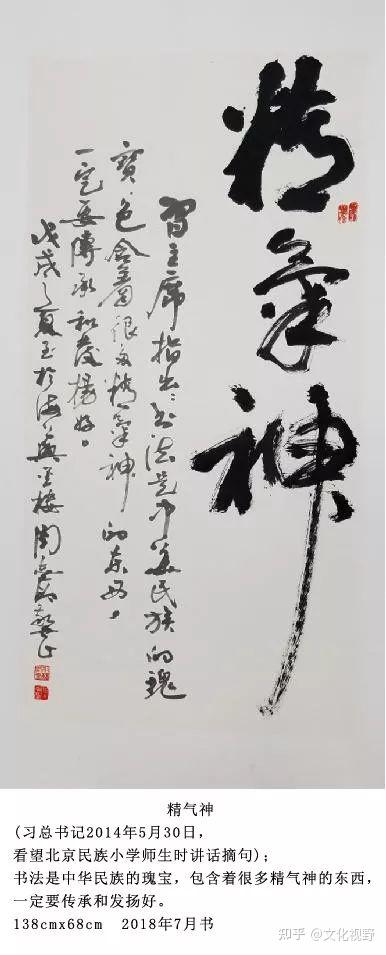 精氣神
習主席指出:书法是中華民族的瑰
寶,包含着很多精氣神的东西,
一定要傳承和發揚好。
戊戌之夏至於海上
精气神
(习总书记2014年5月30日，
看望北京民族小学师生时讲话摘句)；
书法是中华民族的瑰宝，包含着很多精气神的东西，
一定要传承和发扬好。
138cmx68cm 2018年7月书
知乎 @文化视野